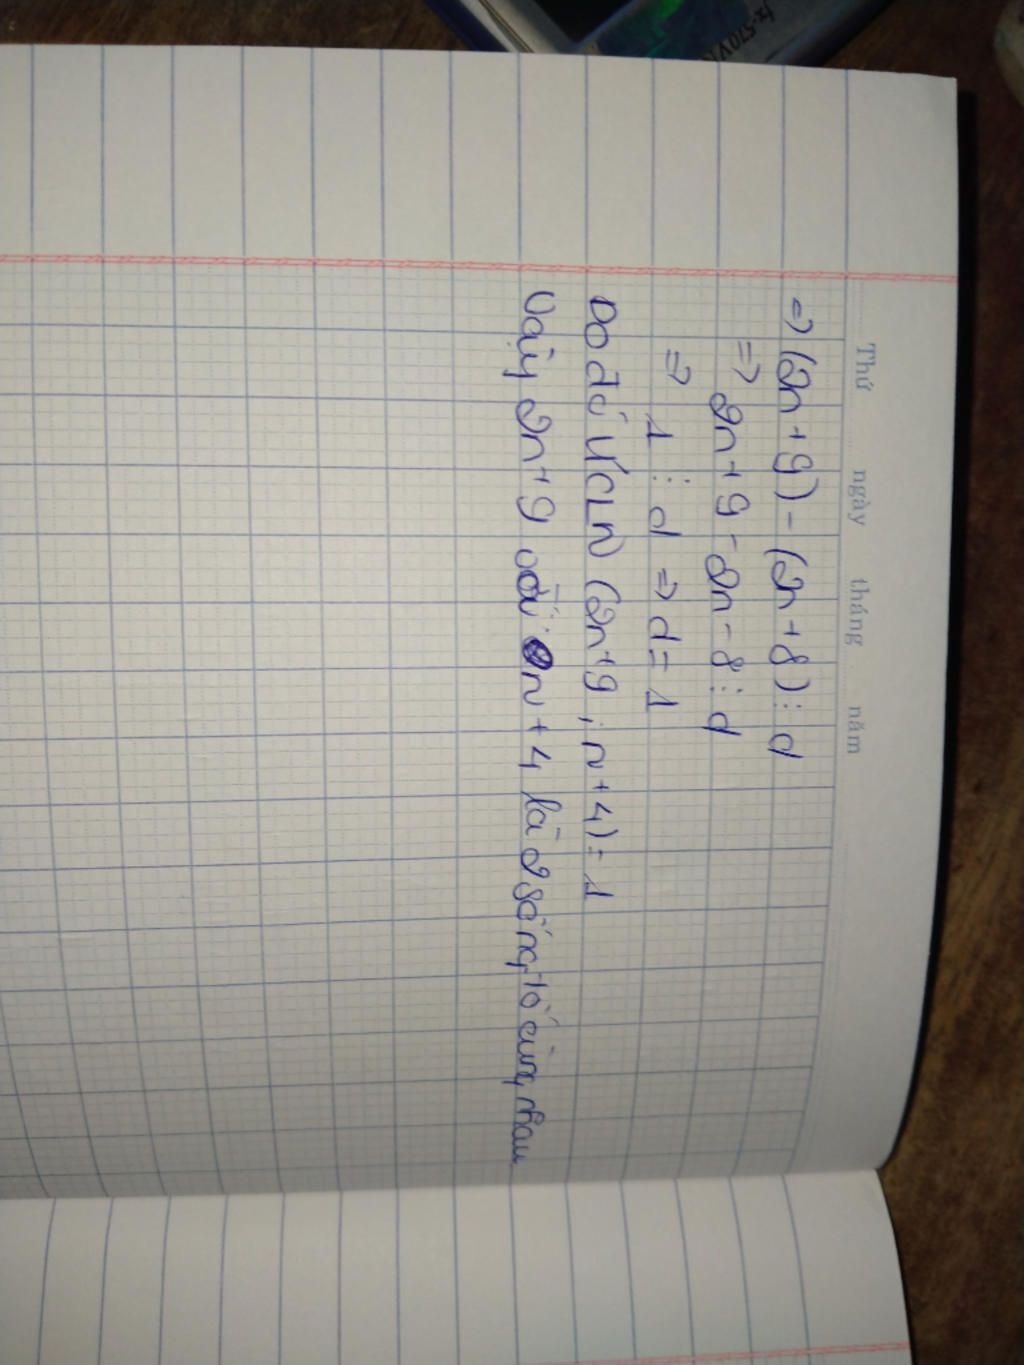 fx-570V
Thứ ngày tháng năm
=> (2n + 9) - (2n + 8) ⋮ d
=> 2n + 9 - 2n - 8 ⋮ d
=> 1 ⋮ d => d = 1
Do đó ƯCLN (2n+9 ; n+4) = 1
Vậy 2n+9 với n+4 là 2 số ng tố cùng nhau